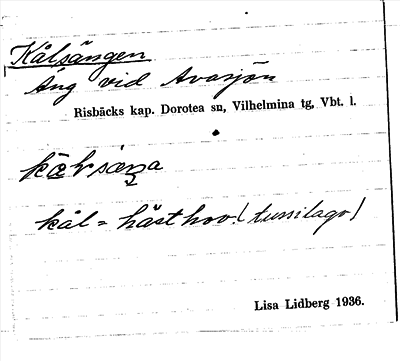 Kålsängen
Äng vid Avasjön
Risbäcks kap. Dorotea sn, Vilhelmina tg, Vbt. l.
kål = hästhov. (tussilago)
Lisa Lidberg 1936.